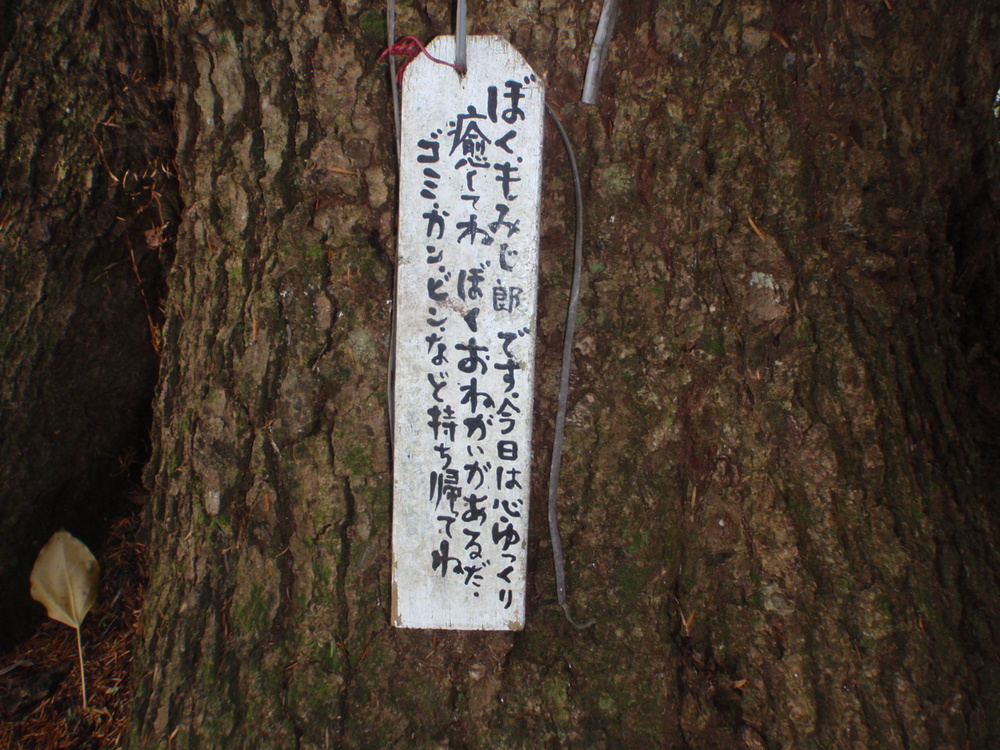 ぼく、もみじ郎です。今日は心ゆっくり
癒してね ぼくおねがいがあるだ。
ゴミ・カン、ビンなど持ち帰ってね